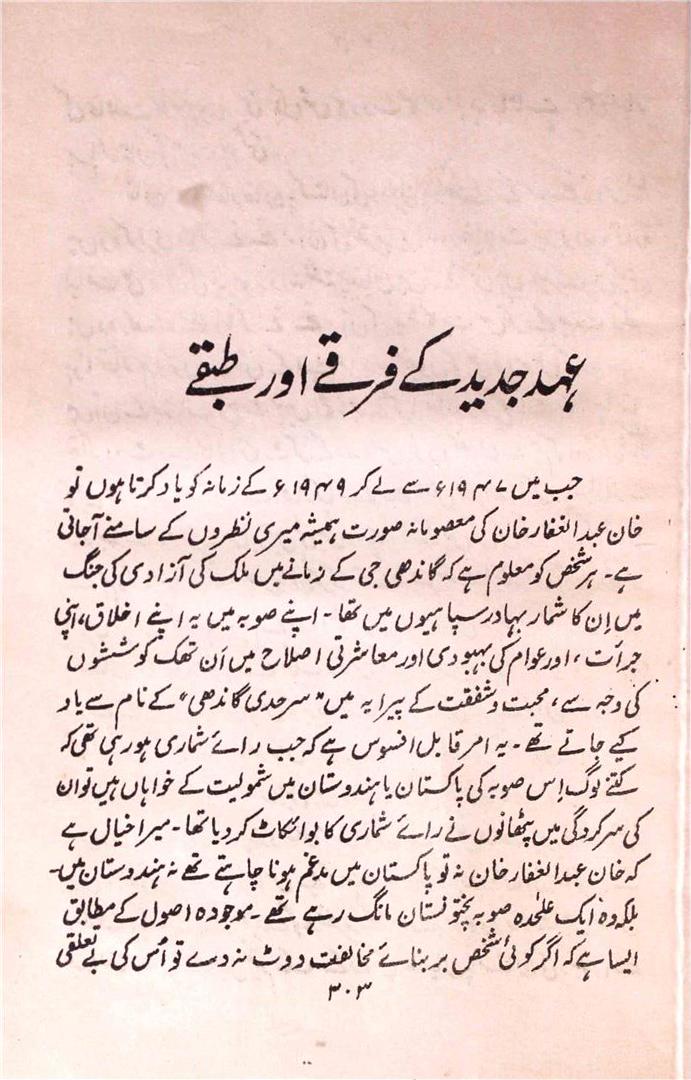 عہد جدید کے فرقے اور طبقے
جب میں ۱۹۴۷ء سے لے کر ۱۹۴۹ء کے زمانہ کو یاد کرتا ہوں تو
خان عبدالغفار خان کی معصومانہ صورت ہمیشہ میری نظروں کے سامنے آجاتی
ہے۔ ہر شخص کو معلوم ہے کہ گاندھی جی کے زمانے میں ملک کی آزادی کی جنگ
میں اِن کا شمار بہادر سپاہیوں میں تھا۔ اپنے صوبہ میں یہ اپنے اخلاق، اپنی
جرأت، اور عوام کی بہبودی اور معاشرتی اصلاح میں اَن تھک کوششوں
کی وجہ سے، محبت و شفقت کے پیرایہ میں "سرحدی گاندھی" کے نام سے یاد
کیے جاتے تھے۔ یہ امر قابل افسوس ہے کہ جب رائے شماری ہو رہی تھی کہ
کتنے لوگ اِس صوبہ کی پاکستان یا ہندوستان میں شمولیت کے خواہاں ہیں تو ان
کی سرکردگی میں پٹھانوں نے رائے شماری کا بوائکاٹ کر دیا تھا۔ میرا خیال ہے
کہ خان عبدالغفار خان نہ تو پاکستان میں مدغم ہونا چاہتے تھے نہ ہندوستان میں۔
بلکہ وہ ایک علٰحدہ صوبہ پختونستان مانگ رہے تھے۔ موجودہ اصول کے مطابق
ایسا ہے کہ اگر کوئی شخص بر بنائے مخالفت ووٹ نہ دے تو اُس کی بے تعلقی
۳۰۳